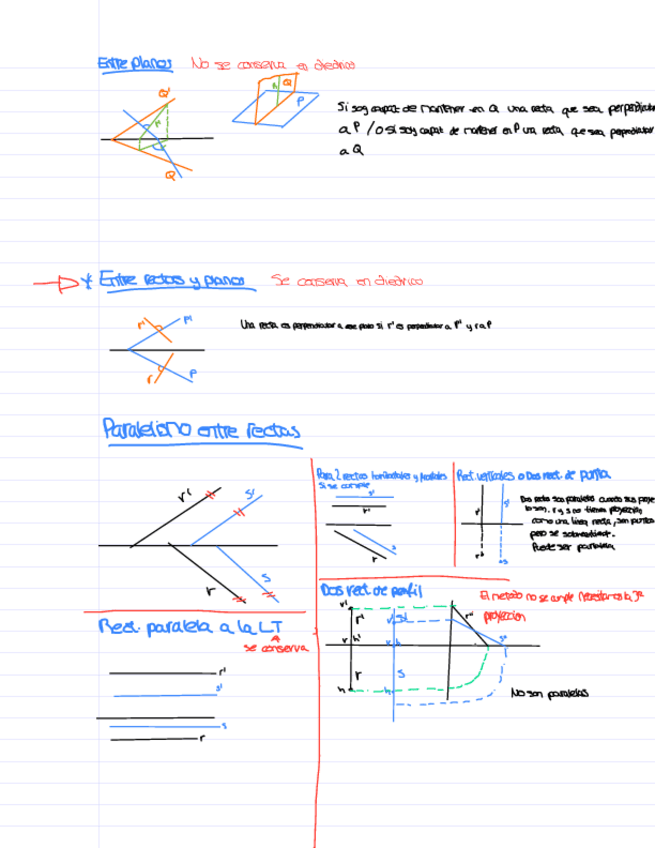 Entre planos No se conserva en diedrico
Q'
r'
Q
h
Q
P
Si soy capaz de mantener en Q una recta que sea perpendicular
a P / o si soy capaz de mantener en P una recta que sea perpendicular
a Q
Entre rectas y planos Se conserva en diedrico
r'
P'
r
P
Una recta es perpendicular a ese plano si r' es perpendicular a P' y r a P
Paralelismo entre rectas
r'
s'
r
s
Para 2 rectas horizontales y frontales
si se cumple
s'
r'
s
r
Rect. verticales o Dos rect. de punta
r'
s'
r
s
Dos rectas son paralelas cuando sus proye
lo son. r y s no tienen proyección
como una línea recta, son puntos
pero se sobreentiende.
Puede ser paralela
Rect. paralela a la LT
se conserva
r'
s'
s
r
Dos rect. de perfil
El metodo no se cumple Necesitamos la 3ª
proyección
v'
r'
v'
s'
r''
s''
v
h'
v
h'
r
s
h
h
No son paralelas